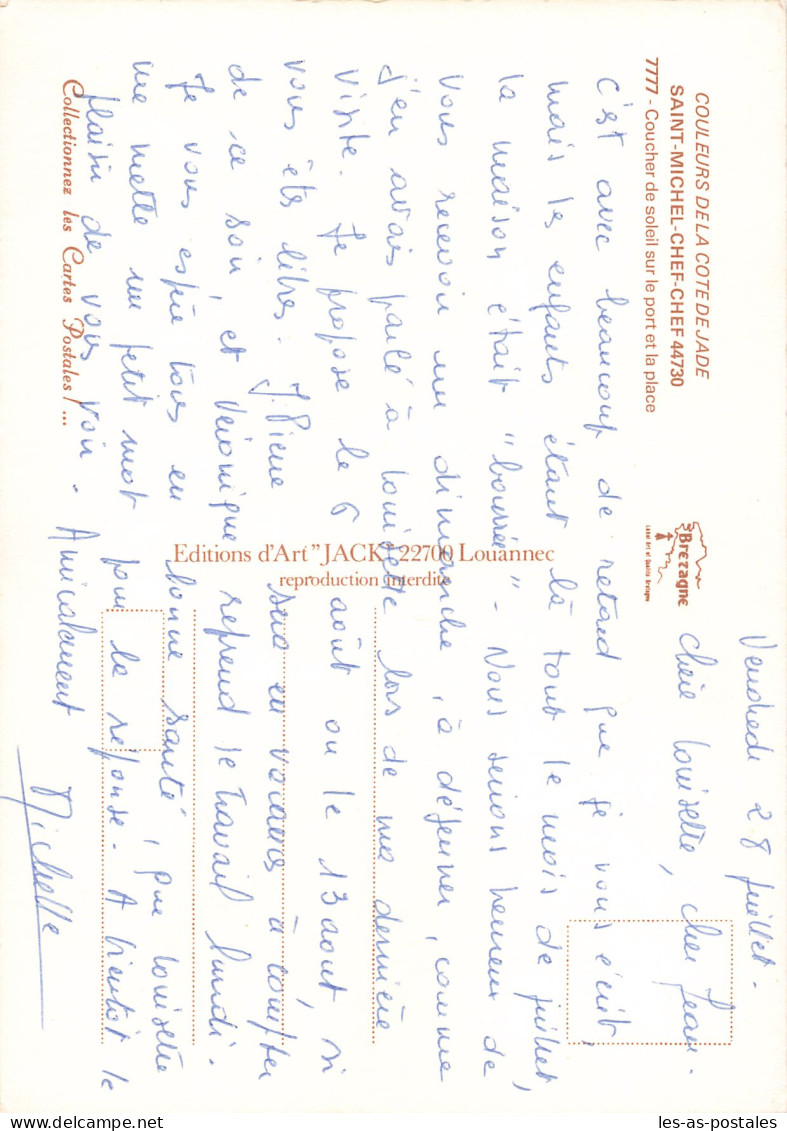 COULEURS DE LA COTE DE JADE
SAINT-MICHEL-CHEF-CHEF 44730
7777 - Coucher de soleil sur le port et la place
Bretagne
Label Art et Qualité Bretagne
Vendredi 28 juillet.
Chère Louisette, cher Jean.
C'est avec beaucoup de retard que je vous écrit,
mais les enfants étant là tout le mois de juillet,
la maison était "bourrée". Nous serions heureux de
vous recevoir un dimanche, à déjeuner, comme
j'en avais parlé à Louisette lors de ma dernière
visite. Je propose le 6 août ou le 13 aout, si
vous êtes libres. J. Pierre sera en vacances à compter
de ce soir, et Veronique reprend le travail lundi.
Je vous espère tous en bonne santé, que Louisette
me mette un petit mot pour la réponse. A bientôt le
plaisir de vous voir. Amicalement
Michelle
Editions d'Art "JACK" 22700 Louannec
reproduction interdite
Collectionnez les Cartes Postales !...
les-as-postales.com